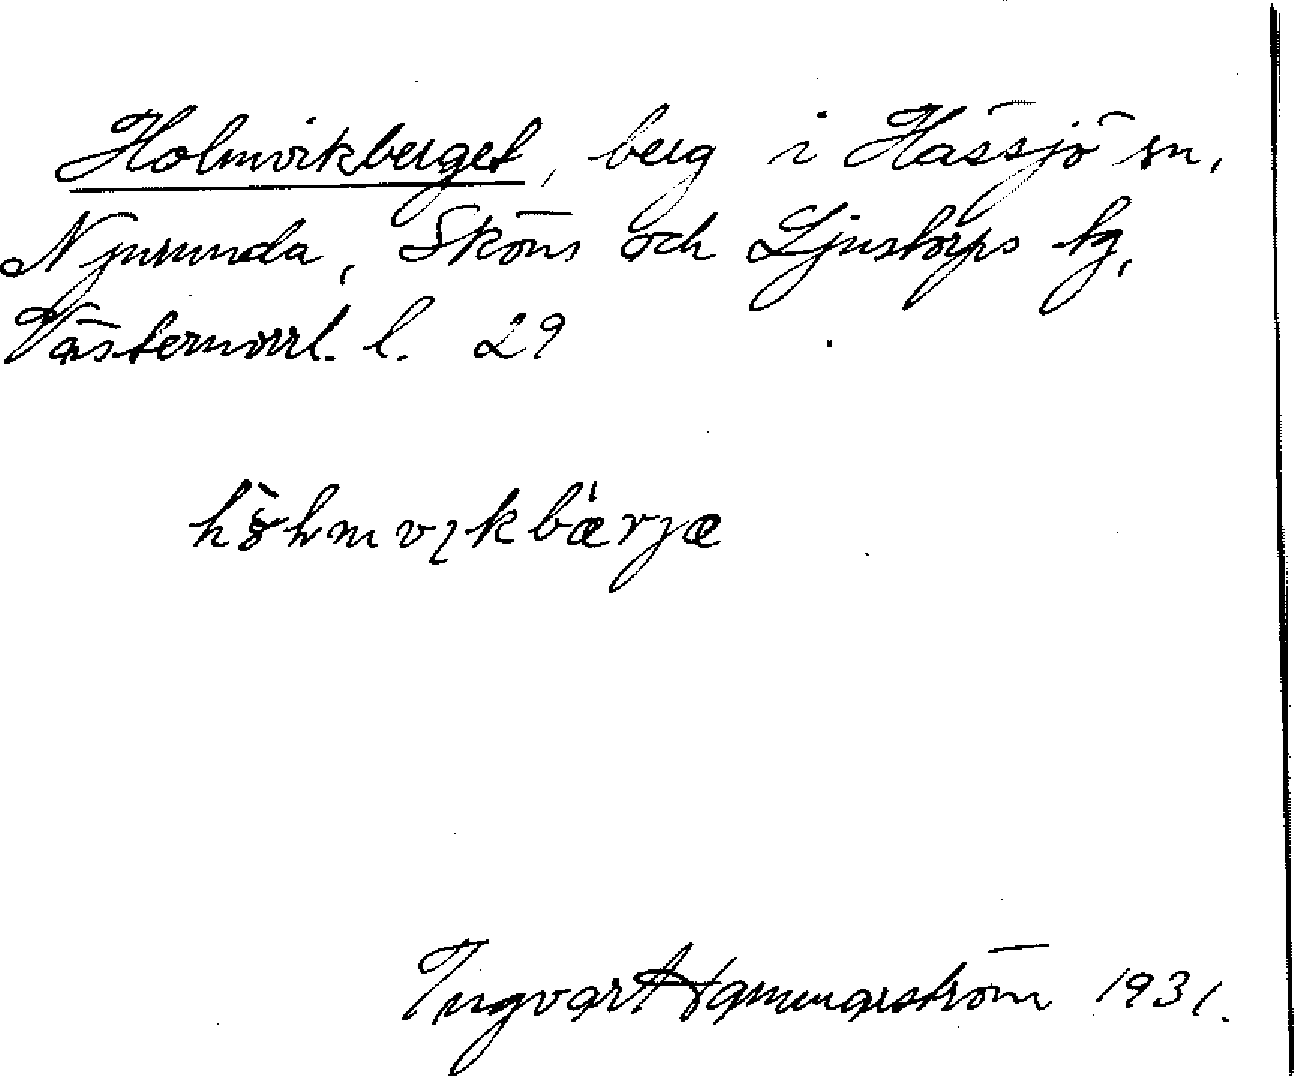 Holmvikberget, berg i Hässjö sn,
Njurunda, Sköns och Ljustorps tg,
Västernorrl. l. 29
Ingvar Hammarström 1931.